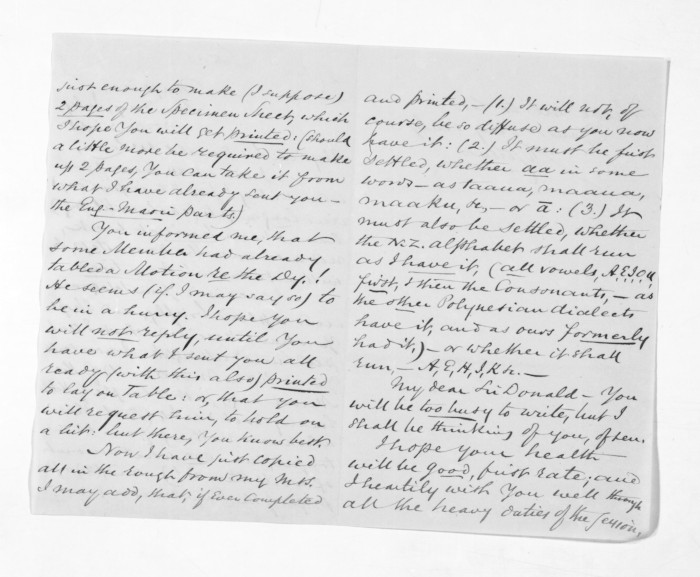 just enough to make (I suppose)
2 pages of the Specimen Sheet, which
I hope You will get printed: (should
a little more be required to make
up 2 pages, You can take it from
what I have already sent you—
the Eng-Maori parts.)
You informed me, that
some Member had already
tabled a Motion re the Dy.!
He seems (if I may say so) to
be in a hurry. I hope You
will not reply, until You
have what I sent you all
ready (with this also) printed
to lay on Table: or, that you
will request him, to hold on
a bit: but there, You know best.
Now I have just copied
all in the rough from my Ms.
I may add, that, if Ever completed
and printed,—(1.) It will not, of
course, be so diffuse as you now
have it: (2.) It must be first
settled, whether aa in some
words—as taaua, maaua,
maaku, &c,—or ā: (3.) It
must also be settled, whether
the N.Z. alphabet shall run
as I have it, (all vowels, A,E,I,O,U,
first, & then the Consonants,—as
the other Polynesian dialects
have it, and as ours formerly
had it,)—or whether it shall
run,—A, E, H, I, K &c.—
My dear Sir Donald—You
will be too busy to write, but I
shall be thinking of you, often.
I hope Your health
will be good, first rate; and
I heartily wish You well through
all the heavy duties of the Session,